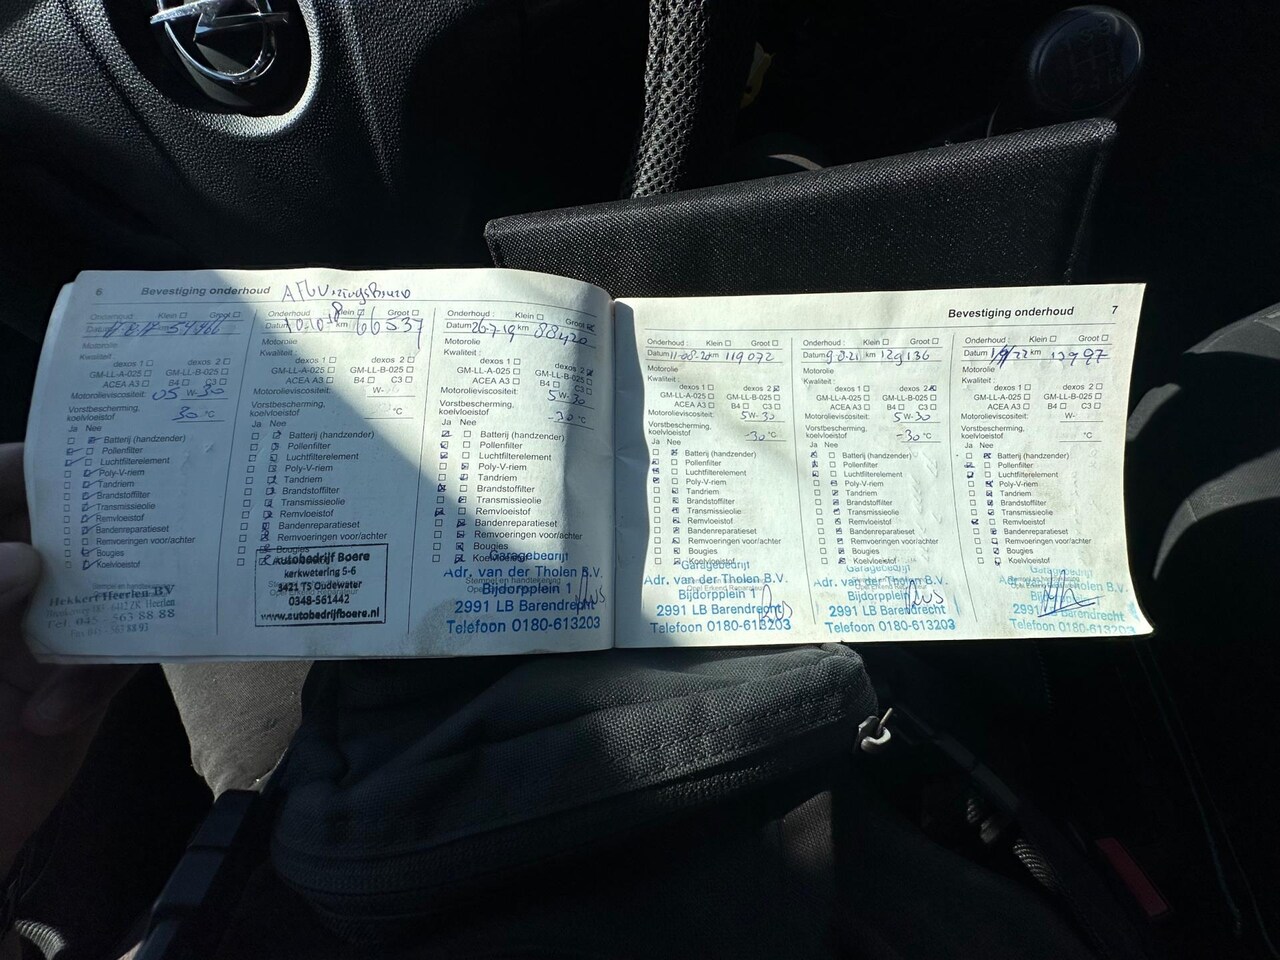 6 Bevestiging onderhoud
Onderhoud : Klein ☐ Groot ☐
Datum 54966
Motorolie
Kwaliteit :
dexos 1 ☐ dexos 2 ☐
GM-LL-A-025 ☐ GM-LL-B-025 ☐
ACEA A3 ☐ B4 ☐ C3 ☐
Motorolieviscositeit: 05 W-30
Vorstbescherming,
koelvloeistof 30 °C
Ja Nee
Batterij (handzender)
Pollenfilter
Luchtfilterelement
Poly-V-riem
Tandriem
Brandstoffilter
Transmissieolie
Remvloeistof
Bandenreparatieset
Remvoeringen voor/achter
Bougies
Koelvloeistof
Hekkert Heerlen BV
Tel 045 - 563 88 88
Fax 045 - 563 88 93
Onderhoud : Klein Groot ☐
Datum 10.10.18 km 66537
Motorolie
Kwaliteit :
dexos 1 ☐ dexos 2 ☐
GM-LL-A-025 ☐ GM-LL-B-025 ☐
ACEA A3 ☐ B4 ☐ C3 ☐
Motorolieviscositeit: W-
Vorstbescherming,
koelvloeistof °C
Ja Nee
Batterij (handzender)
Pollenfilter
Luchtfilterelement
Poly-V-riem
Tandriem
Brandstoffilter
Transmissieolie
Remvloeistof
Bandenreparatieset
Remvoeringen voor/achter
Bougies
Autobedrijf Boere
kerkwetering 5-6
3421 TS Oudewater
0348-561442
www.autobedrijfboere.nl
Onderhoud : Klein ☐ Groot
Datum 26.7.19 km 88420
Motorolie
Kwaliteit :
dexos 1 ☐ dexos 2
GM-LL-A-025 ☐ GM-LL-B-025 ☐
ACEA A3 ☐ B4 ☐ C3 ☐
Motorolieviscositeit: 5W-30
Vorstbescherming,
koelvloeistof -30 °C
Ja Nee
Batterij (handzender)
Pollenfilter
Luchtfilterelement
Poly-V-riem
Tandriem
Brandstoffilter
Transmissieolie
Remvloeistof
Bandenreparatieset
Remvoeringen voor/achter
Bougies
Koelvloeistof
Garagebedrijf
Adr. van der Tholen B.V.
Bijdorpplein 1
2991 LB Barendrecht
Telefoon 0180-613203
Bevestiging onderhoud 7
Onderhoud : Klein ☐ Groot ☐
Datum 11-08-20 km 119072
Motorolie
Kwaliteit :
dexos 1 ☐ dexos 2
GM-LL-A-025 ☐ GM-LL-B-025 ☐
ACEA A3 ☐ B4 ☐ C3 ☐
Motorolieviscositeit: 5W-30
Vorstbescherming,
koelvloeistof -30 °C
Ja Nee
Batterij (handzender)
Pollenfilter
Luchtfilterelement
Poly-V-riem
Tandriem
Brandstoffilter
Transmissieolie
Remvloeistof
Bandenreparatieset
Remvoeringen voor/achter
Bougies
Koelvloeistof
Garagebedrijf
Adr. van der Tholen B.V.
Bijdorpplein 1
2991 LB Barendrecht
Telefoon 0180-613203
Onderhoud : Klein ☐ Groot ☐
Datum 9.8.21 km 129136
Motorolie
Kwaliteit :
dexos 1 ☐ dexos 2
GM-LL-A-025 ☐ GM-LL-B-025 ☐
ACEA A3 ☐ B4 ☐ C3 ☐
Motorolieviscositeit: 5W-30
Vorstbescherming,
koelvloeistof -30 °C
Ja Nee
Batterij (handzender)
Pollenfilter
Luchtfilterelement
Poly-V-riem
Tandriem
Brandstoffilter
Transmissieolie
Remvloeistof
Bandenreparatieset
Remvoeringen voor/achter
Bougies
Koelvloeistof
Garagebedrijf
Adr. van der Tholen B.V.
Bijdorpplein 1
2991 LB Barendrecht
Telefoon 0180-613203
Onderhoud : Klein ☐ Groot ☐
Datum km
Motorolie
Kwaliteit :
dexos 1 ☐ dexos 2 ☐
GM-LL-A-025 ☐ GM-LL-B-025 ☐
ACEA A3 ☐ B4 ☐ C3 ☐
Motorolieviscositeit: W-
Vorstbescherming,
koelvloeistof °C
Ja Nee
Batterij (handzender)
Pollenfilter
Luchtfilterelement
Poly-V-riem
Tandriem
Brandstoffilter
Transmissieolie
Remvloeistof
Bandenreparatieset
Remvoeringen voor/achter
Bougies
Koelvloeistof
Garagebedrijf
Adr. van der Tholen B.V.
Bijdorpplein 1
2991 LB Barendrecht
Telefoon 0180-613203